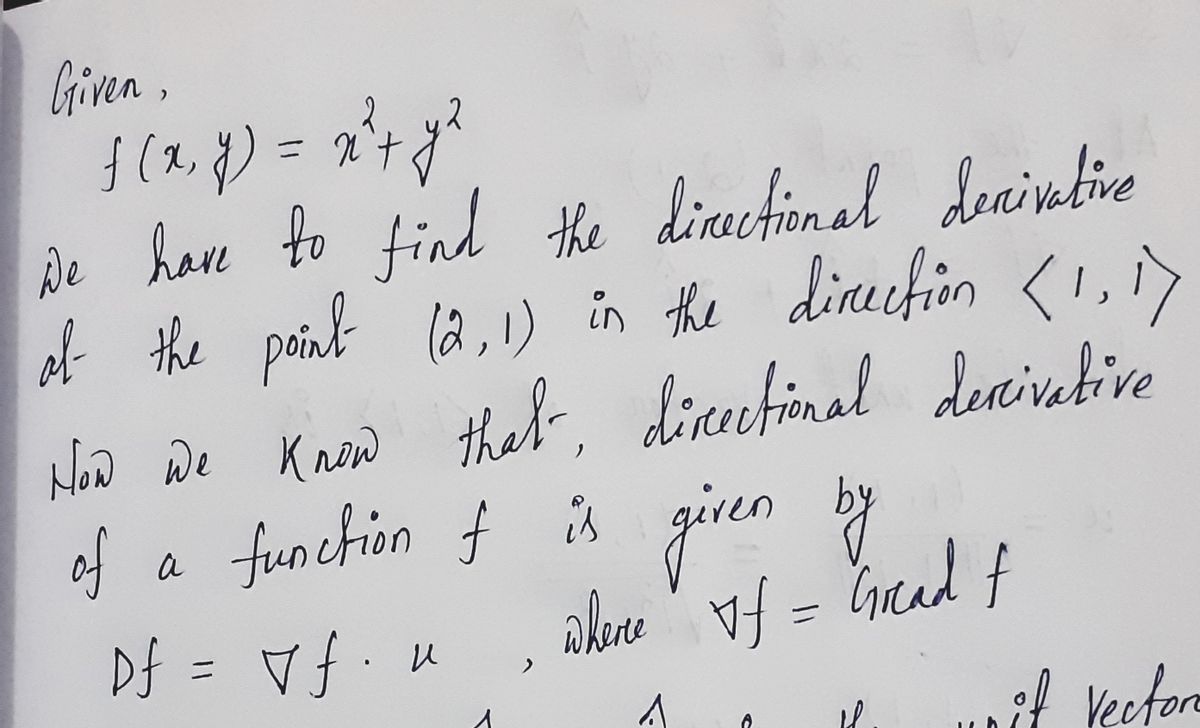 Given,
f(x, y) = x² + y²
We have to find the directional derivative
at the point (2, 1) in the direction ⟨1, 1⟩
Now we know that, directional derivative
of a function f is given by
Df = ∇f . u , where ∇f = Grad f
unit vector